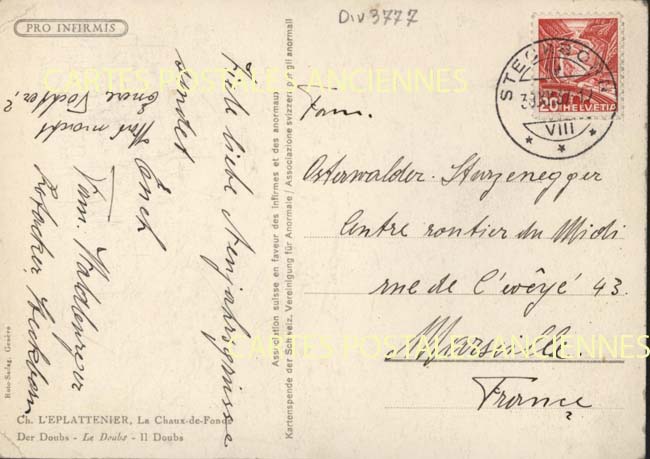 PRO INFIRMIS
Div 3777
Viele liebe Neujahrsgrüsse
sendet
Euch
Fam. Waldenmeyer
Was macht
Eure Tochter?
Ch. L'EPLATTENIER, La Chaux-de-Fonds
Der Doubs - Le Doubs - Il Doubs
Roto-Sadag, Genève
Association suisse en faveur des infirmes et des anormaux
Kartenspende der Schweiz. Vereinigung für Anormale / Associazione svizzera per gli anormali
STECKBORN
VIII
20
HELVETIA
Fam.
Osterwalder-Sturzenegger
Centre routier du Midi
rue de l'évêché 43.
Marseille
France
CARTES POSTALES ANCIENNES
CARTES POSTALES ANCIENNES